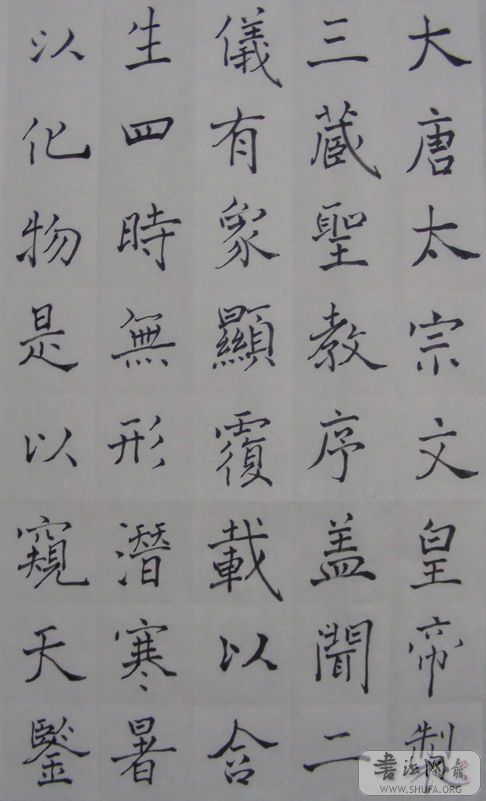 大唐太宗文皇帝製
三藏聖教序盖聞二
儀有象顯覆載以含
生四時無形潛寒暑
以化物是以窺天鑒
書法网
WWW.SHUFA.ORG